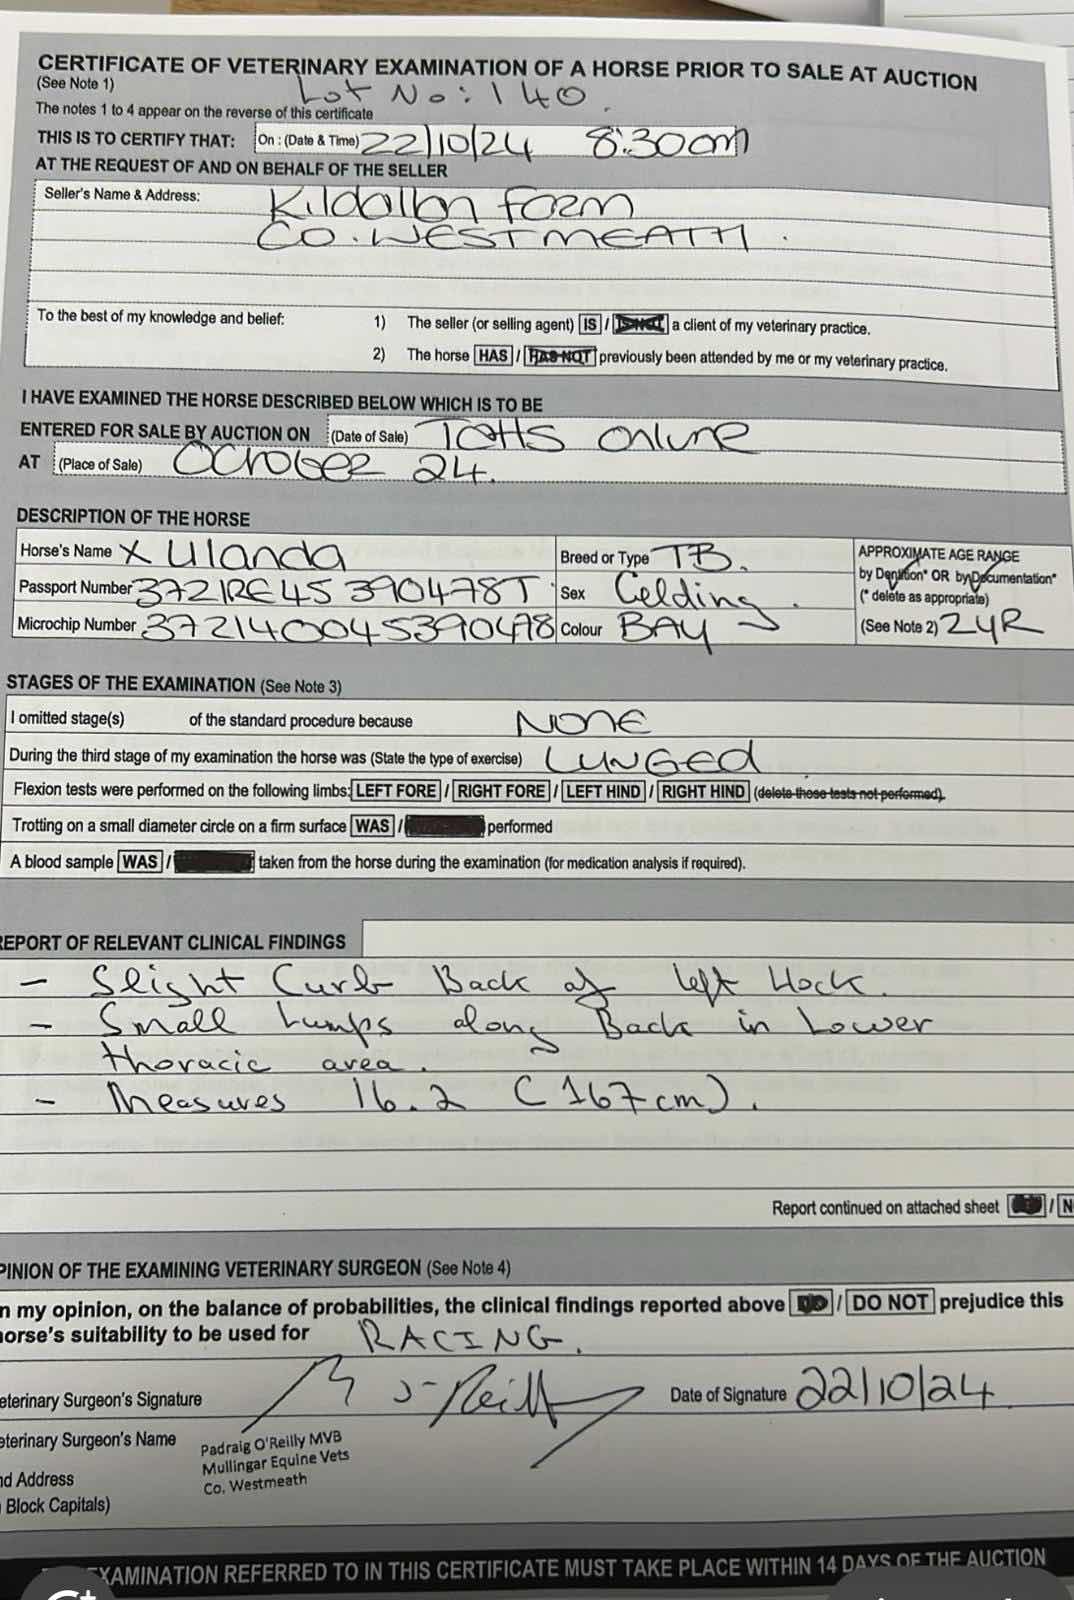 CERTIFICATE OF VETERINARY EXAMINATION OF A HORSE PRIOR TO SALE AT AUCTION
(See Note 1)
Lot No: 140.
The notes 1 to 4 appear on the reverse of this certificate
THIS IS TO CERTIFY THAT: On : (Date & Time) 22/10/24 8:30am
AT THE REQUEST OF AND ON BEHALF OF THE SELLER
Seller's Name & Address: Kildallon Farm
CO. WESTMEATH.
To the best of my knowledge and belief: 1) The seller (or selling agent) IS / IS NOT a client of my veterinary practice.
2) The horse HAS / HAS NOT previously been attended by me or my veterinary practice.
I HAVE EXAMINED THE HORSE DESCRIBED BELOW WHICH IS TO BE
ENTERED FOR SALE BY AUCTION ON (Date of Sale) TATTS Online
AT (Place of Sale) October 24.
DESCRIPTION OF THE HORSE
Horse's Name X Ulanda Breed or Type TB. APPROXIMATE AGE RANGE
by Dentition* OR by Documentation*
Passport Number 372IRE45 390478T Sex Gelding. (* delete as appropriate)
Microchip Number 372140045390478 Colour BAY (See Note 2) 2YR
STAGES OF THE EXAMINATION (See Note 3)
I omitted stage(s) of the standard procedure because NONE
During the third stage of my examination the horse was (State the type of exercise) LUNGED
Flexion tests were performed on the following limbs: LEFT FORE / RIGHT FORE / LEFT HIND / RIGHT HIND (delete those tests not performed).
Trotting on a small diameter circle on a firm surface WAS / performed
A blood sample WAS / taken from the horse during the examination (for medication analysis if required).
REPORT OF RELEVANT CLINICAL FINDINGS
- Slight Curb Back of left Hock.
- Small Lumps along Back in Lower
thoracic area.
- Measures 16.2 (167cm).
Report continued on attached sheet / N
PINION OF THE EXAMINING VETERINARY SURGEON (See Note 4)
n my opinion, on the balance of probabilities, the clinical findings reported above DO / DO NOT prejudice this
horse's suitability to be used for RACING.
eterinary Surgeon's Signature Date of Signature 22/10/24
eterinary Surgeon's Name Padraig O'Reilly MVB
Mullingar Equine Vets
nd Address Co. Westmeath
Block Capitals)
EXAMINATION REFERRED TO IN THIS CERTIFICATE MUST TAKE PLACE WITHIN 14 DAYS OF THE AUCTION